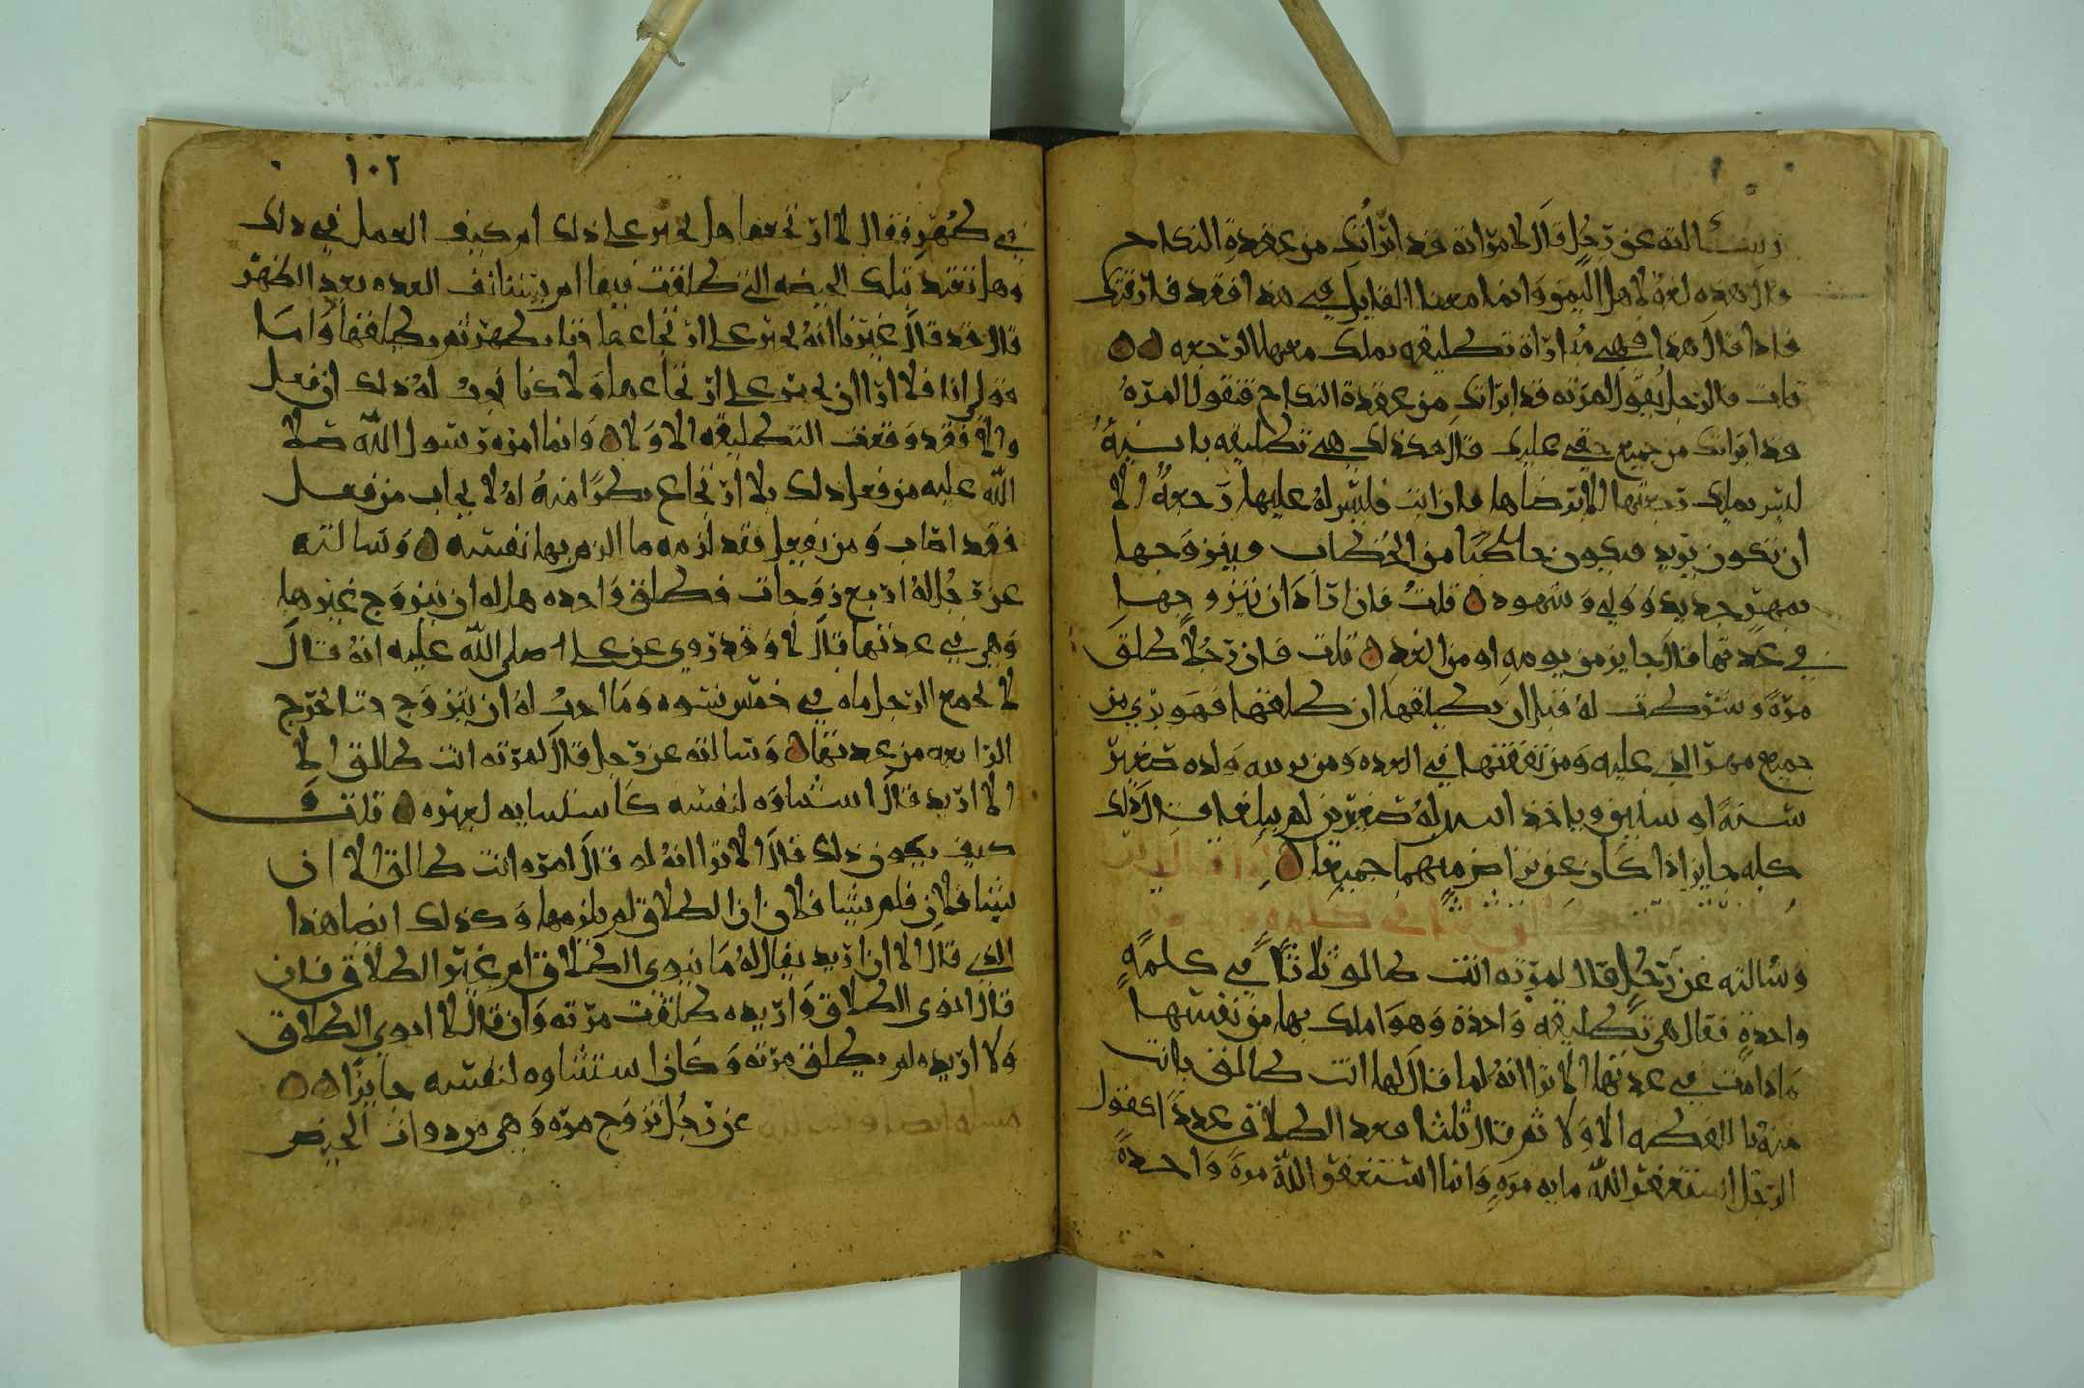 وسألته عن رجل قال لامراته قد ابرأتك من عقدة النكاح
قال هذه لغة لاهل اليمن وانما معنا القايل في هذا فقد فارقتك
فاذا قال هذا فهي مباراة تطليقه يملك معها الرجعه
قلت فالرجل يقول لمرته قد ابراتك من عقدة النكاح فتقول المره
قد ابراتك من جميع حقي عليك قال هذه ذلك هي تطليقه باينه
ليس يملك رجعتها الا برضاها فان ابت فليس له عليها رجعة الا
ان تكون تريد فيكون خاطبا من الخطاب ويتزوجها
بمهر جديد وولي وشهود قلت فان اراد ان يتزوجها
في عدتها قال جايز من يومه او من الغد قلت فان رجلا طلق
مرة وشرطت له قبل ان يطلقها ان طلقها فهو بري من
جميع مهر الذي عليه ومن نفقتها في العده ومن تربيه ولده صغير
سنة او سنتين وياخذ ابنين له صغيرين لم يبلغا قال ذلك
كله جايز اذا كان عن تراض منهما جميعا
وسالته عن رجل قال لمرته انت طالق ثلاثا في كلمة
واحدة فقال هي تطليقه واحدة وهو املك بها من نفسها
مادامت في عدتها الا ترا انه لما قال لها انت طالق بانت
منه باللفظه الاولا ثم قال ثلثا فعد الطلاق عددا كقول
الرجل استغفر الله مايه مره وانما استغفر الله مرة واحدة
١٠٢
في طهر فقال لا ارتجعها هل يجبر على ذلك ام كيف العمل في ذلك
وهل تعتد بتلك الحيضه التي طلقت فيها ام تستانف العده بعد الطهر
قال قد قال غيرنا انه يجبر على ارتجاعها حتا تطهر ثم يطلقها واما
قولي انا فلا ارا ان يجبر على ارتجاعها ولاكنا نحب له ذلك ان فعل
والا فقد وقعت التطليقه الاولا وانما امره رسول الله صلا
الله عليه من فعل ذلك بلا ارتجاع نظرا منه له لا يجاب من فعل
فقد اصاب ومن لم يفعل فقد لزمه ما الزم بها نفسه وسالته
عن رجل له اربع زوجات فطلق واحده هل له ان يتزوج غيرها
وهي في عدتها قال لا وقد روي عن علي صلى الله عليه انه قال
لا يجمع الرجل ماه في خمس نسوه وما احب له ان يتزوج حتا تخرج
الرابعه من عدتها وسالته عن رجل قال لمرته انت طالق الا
الا اريد قال استثناوه لنفسه كاستثنايه لغيره قلت و
كيف يكون ذلك قال الا ترا انه لو قال لمره انت طالق الا ان
يشا فلان فلم يشا فلان ان الطلاق لم يلزمها وكذلك ايضا هذا
الذي قال الا ان اريد يقال له ما تنوي الطلاق ام غير الطلاق فان
قال انوى الطلاق واريده طلقت مرته وان قال لا انوي الطلاق
ولا اريده لم يطلق مرته وكان استثناوه لنفسه جايزا
عن رجل تزوج مره وهي من ذوات الحيض